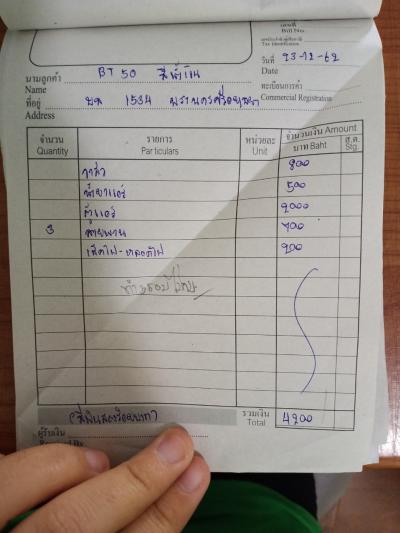 เลขที่
Bill No.
เลขประจำตัวผู้เสียภาษี
Tax Identification
นามลูกค้า BT 50 สีน้ำเงิน วันที่ 23-12-62
Name Date
ที่อยู่ บท 1534 พระนครศรีอยุธยา ทะเบียนการค้า
Address Commercial Registration
จำนวน รายการ หน่วยละ จำนวนเงิน Amount
Quantity Particulars Unit บาท Baht ส.ต. Stg.
วาล์ว 800
น้ำยาแอร์ 500
ตู้แอร์ 2000
3 สายพาน 700
เช็คไฟ - หลอดไฟ 200
(สี่พันสองร้อยบาท) รวมเงิน 4200
Total
ผู้รับเงิน